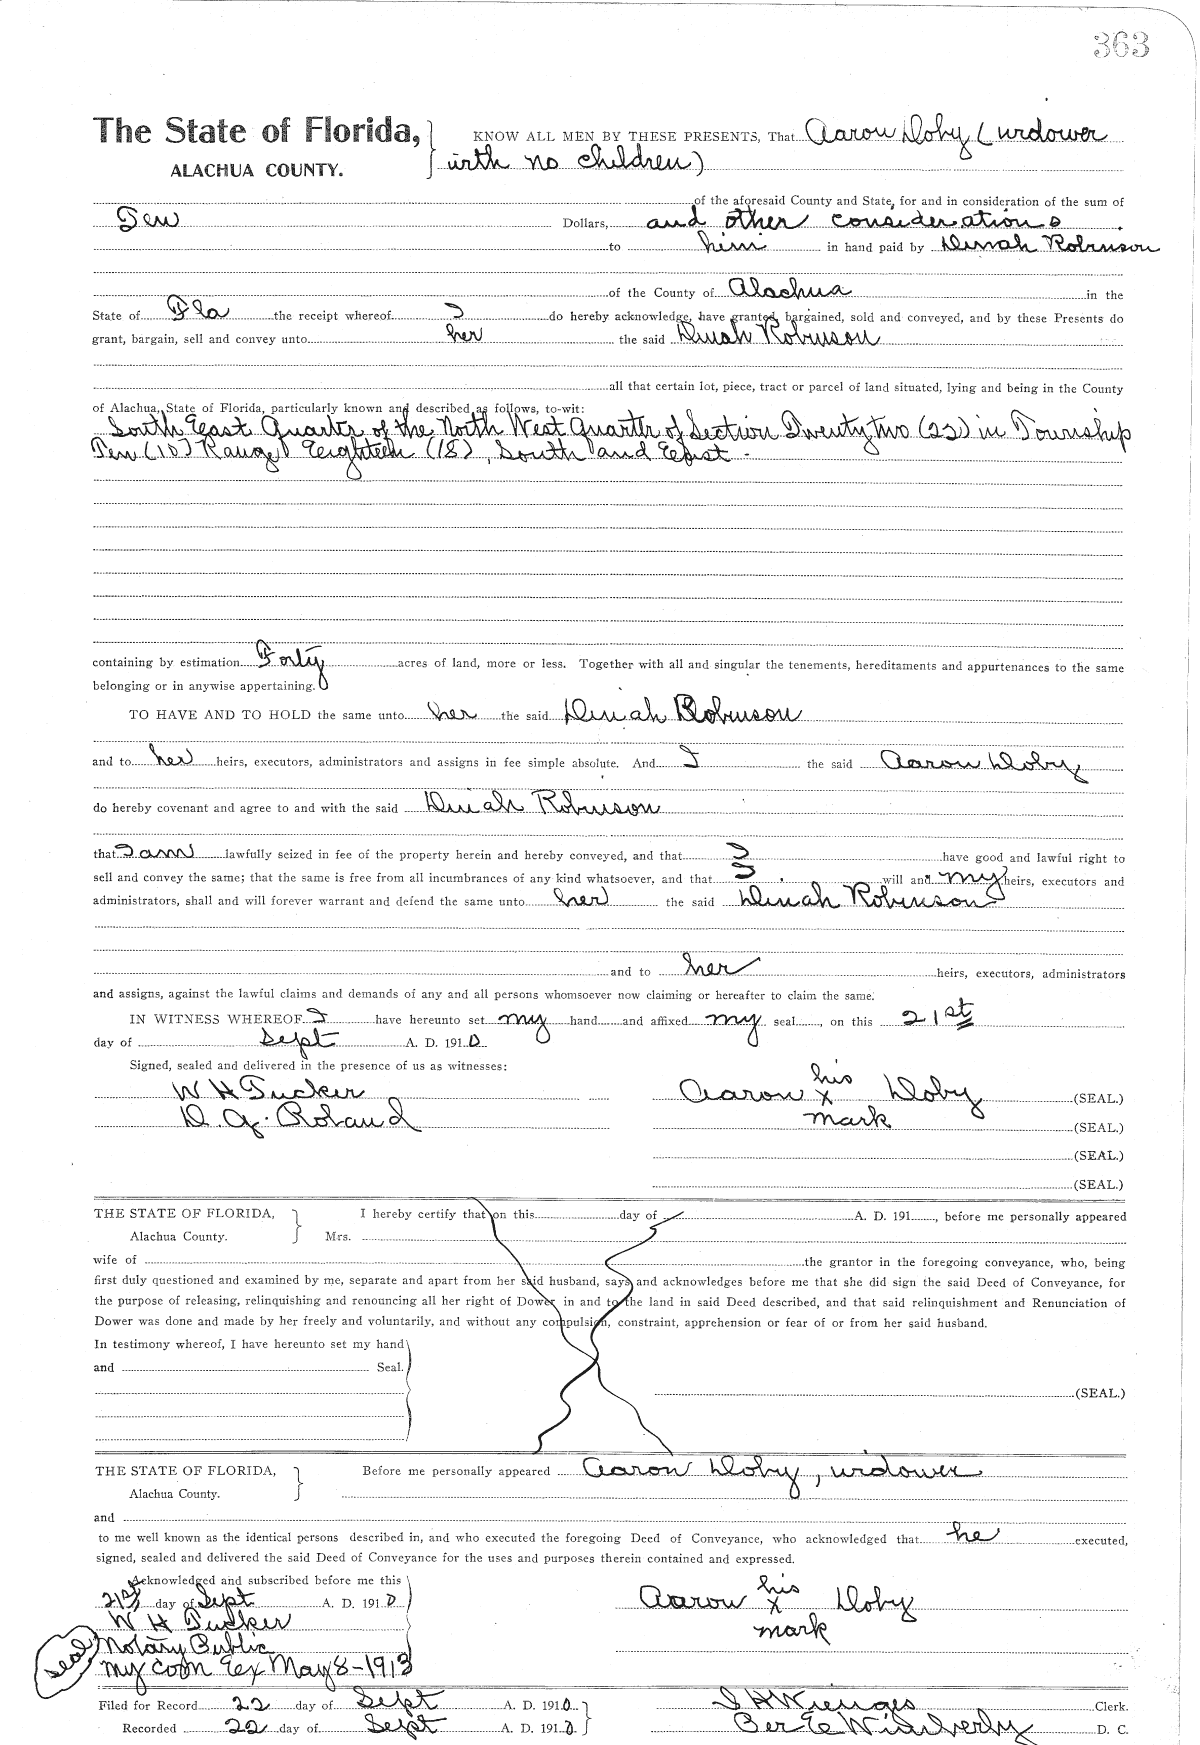 363
The State of Florida, KNOW ALL MEN BY THESE PRESENTS, That Aaron Doby (widower
ALACHUA COUNTY. with no children)
of the aforesaid County and State, for and in consideration of the sum of
Ten Dollars, and other considerations
to him in hand paid by Dinah Robinson
of the County of Alachua in the
State of Fla the receipt whereof I do hereby acknowledge, have granted, bargained, sold and conveyed, and by these Presents do
grant, bargain, sell and convey unto her the said Dinah Robinson
all that certain lot, piece, tract or parcel of land situated, lying and being in the County
of Alachua, State of Florida, particularly known and described as follows, to-wit:
South East Quarter of the North West Quarter of Section Twenty two (22) in Township
Ten (10) Range Eighteen (18), South and East.
containing by estimation Forty acres of land, more or less. Together with all and singular the tenements, hereditaments and appurtenances to the same
belonging or in anywise appertaining.
TO HAVE AND TO HOLD the same unto her the said Dinah Robinson
and to her heirs, executors, administrators and assigns in fee simple absolute. And I the said Aaron Doby
do hereby covenant and agree to and with the said Dinah Robinson
that I am lawfully seized in fee of the property herein and hereby conveyed, and that I have good and lawful right to
sell and convey the same; that the same is free from all incumbrances of any kind whatsoever, and that I will and my heirs, executors and
administrators, shall and will forever warrant and defend the same unto her the said Dinah Robinson
and to her heirs, executors, administrators
and assigns, against the lawful claims and demands of any and all persons whomsoever now claiming or hereafter to claim the same.
IN WITNESS WHEREOF I have hereunto set my hand and affixed my seal, on this 21st
day of Sept A. D. 1910.
Signed, sealed and delivered in the presence of us as witnesses:
W H Tucker Aaron his x mark Doby (SEAL.)
D. G. Roland (SEAL.)
(SEAL.)
(SEAL.)
THE STATE OF FLORIDA, I hereby certify that on this day of A. D. 191 , before me personally appeared
Alachua County. Mrs.
wife of the grantor in the foregoing conveyance, who, being
first duly questioned and examined by me, separate and apart from her said husband, says and acknowledges before me that she did sign the said Deed of Conveyance, for
the purpose of releasing, relinquishing and renouncing all her right of Dower in and to the land in said Deed described, and that said relinquishment and Renunciation of
Dower was done and made by her freely and voluntarily, and without any compulsion, constraint, apprehension or fear of or from her said husband.
In testimony whereof, I have hereunto set my hand
and Seal.
(SEAL.)
THE STATE OF FLORIDA, Before me personally appeared Aaron Doby, widower
Alachua County.
and
to me well known as the identical persons described in, and who executed the foregoing Deed of Conveyance, who acknowledged that he executed,
signed, sealed and delivered the said Deed of Conveyance for the uses and purposes therein contained and expressed.
Acknowledged and subscribed before me this
21st day of Sept A. D. 1910 Aaron his x mark Doby
W H Tucker
seal Notary Public
my com Ex May 8-1913
Filed for Record 22 day of Sept A. D. 1910 S H Wienges Clerk.
Recorded 22 day of Sept A. D. 1910. Per E Wimberly D. C.